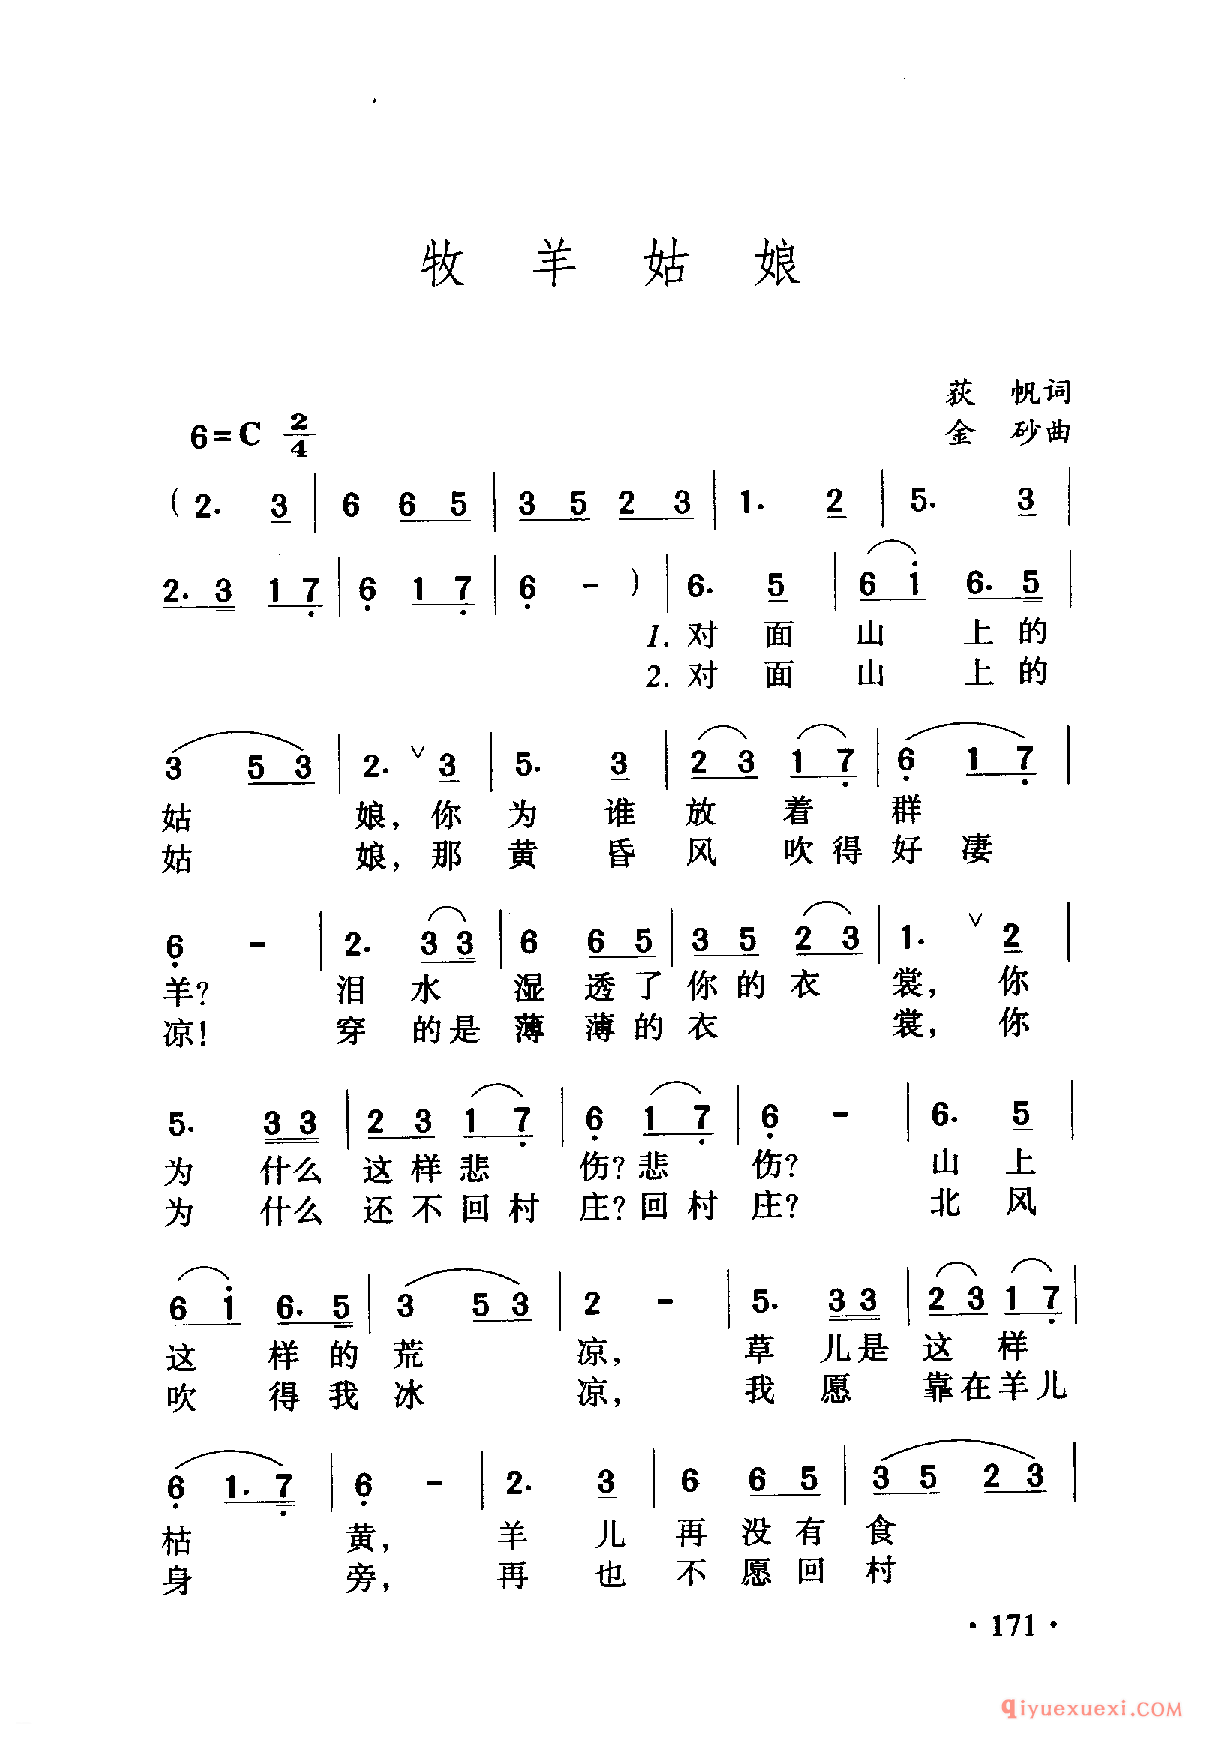 牧 羊 姑 娘
荻 帆词
6=C 2/4 金 砂曲
( 2. 3 | 6 6 5 | 3 5 2 3 | 1. 2 | 5. 3 |
2. 3 1 7 | 6 1 7 | 6 - ) | 6. 5 | 6 i 6. 5 |
1. 对 面 山 上 的
2. 对 面 山 上 的
3 5 3 | 2. ∨ 3 | 5. 3 | 2 3 1 7 | 6 1 7 |
姑 娘, 你 为 谁 放 着 群
姑 娘, 那 黄 昏 风 吹 得 好 凄
6 - | 2. 3 3 | 6 6 5 | 3 5 2 3 | 1. ∨ 2 |
羊? 泪 水 湿 透 了 你 的 衣 裳, 你
凉! 穿 的 是 薄 薄 的 衣 裳, 你
5. 3 3 | 2 3 1 7 | 6 1 7 | 6 - | 6. 5 |
为 什 么 这 样 悲 伤? 悲 伤? 山 上
为 什 么 还 不 回 村 庄? 回 村 庄? 北 风
6 i 6. 5 | 3 5 3 | 2 - | 5. 3 3 | 2 3 1 7 |
这 样 的 荒 凉, 草 儿 是 这 样
吹 得 我 冰 凉, 我 愿 靠 在 羊 儿
6 1. 7 | 6 - | 2. 3 | 6 6 5 | 3 5 2 3 |
枯 黄, 羊 儿 再 没 有 食
身 旁, 再 也 不 愿 回 村
· 171 ·
qiyuexuexi.COM